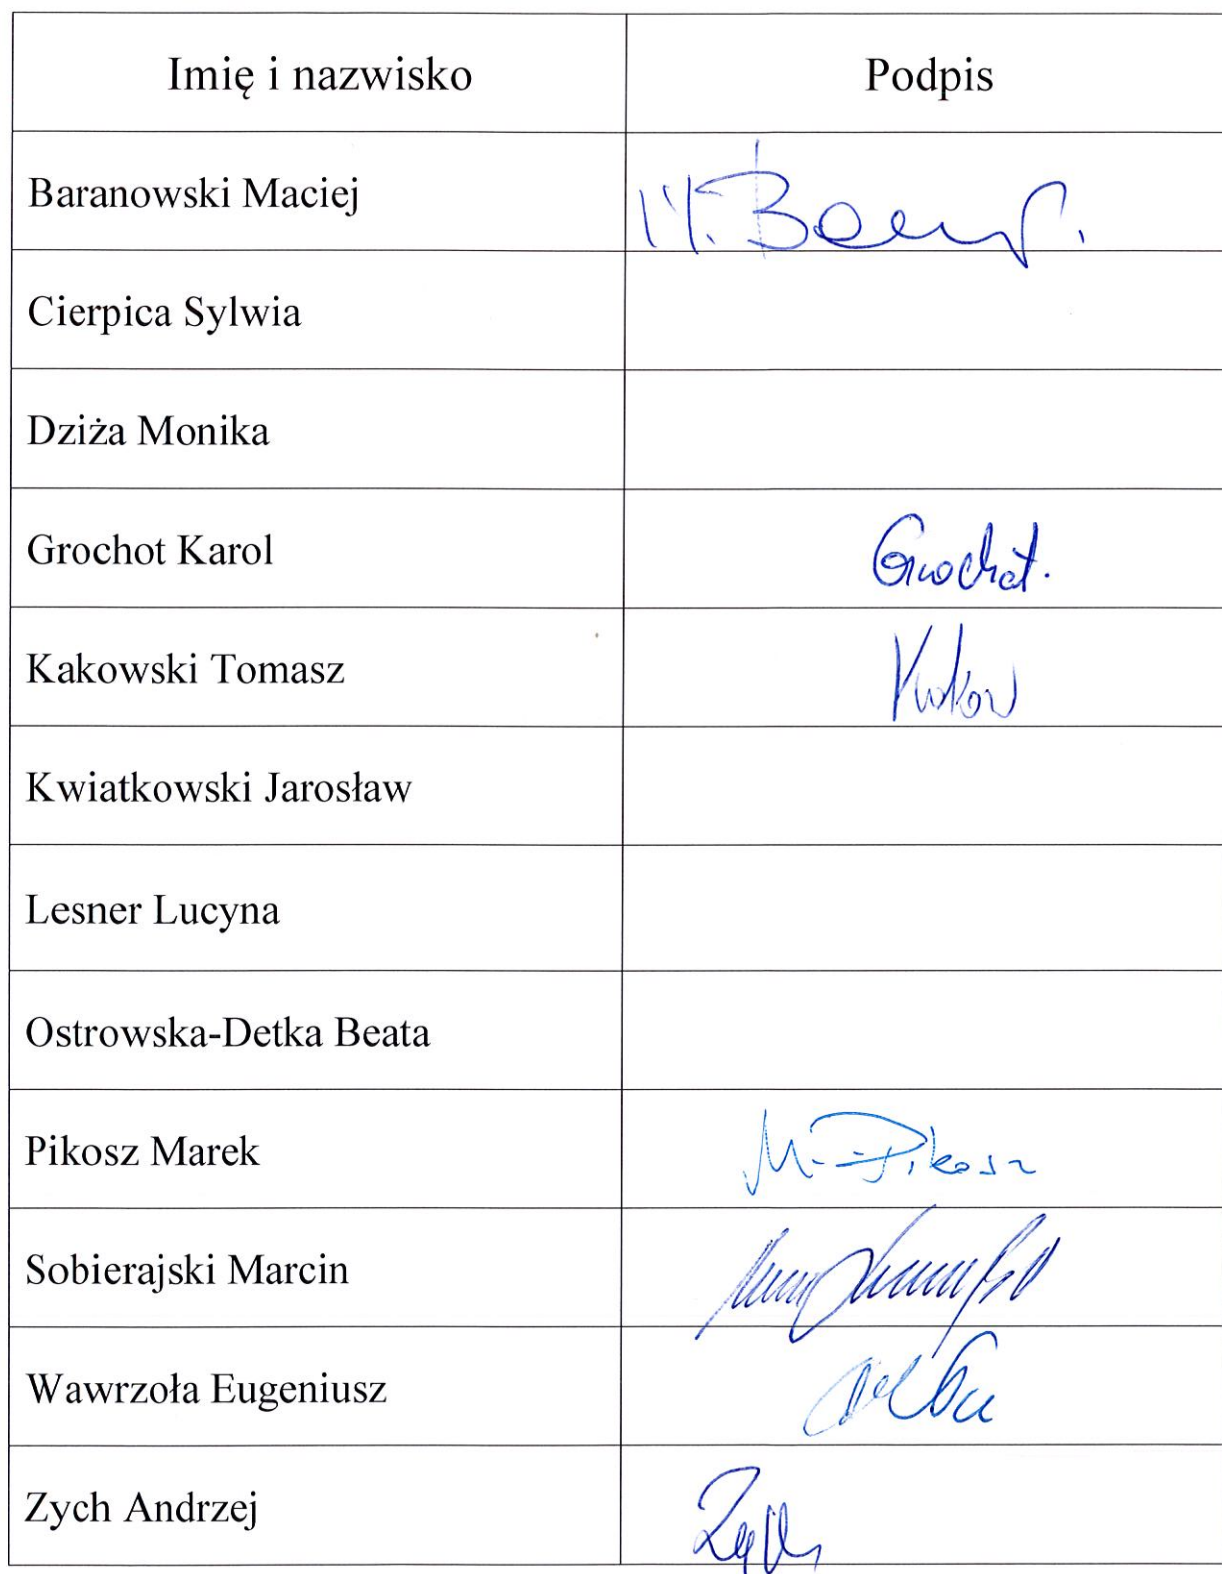 Imię i nazwisko Podpis
Baranowski Maciej M. Baran
Cierpica Sylwia
Dziża Monika
Grochot Karol Grochot.
Kakowski Tomasz Kakow
Kwiatkowski Jarosław
Lesner Lucyna
Ostrowska-Detka Beata
Pikosz Marek M. Pikosz
Sobierajski Marcin
Wawrzoła Eugeniusz
Zych Andrzej Zych